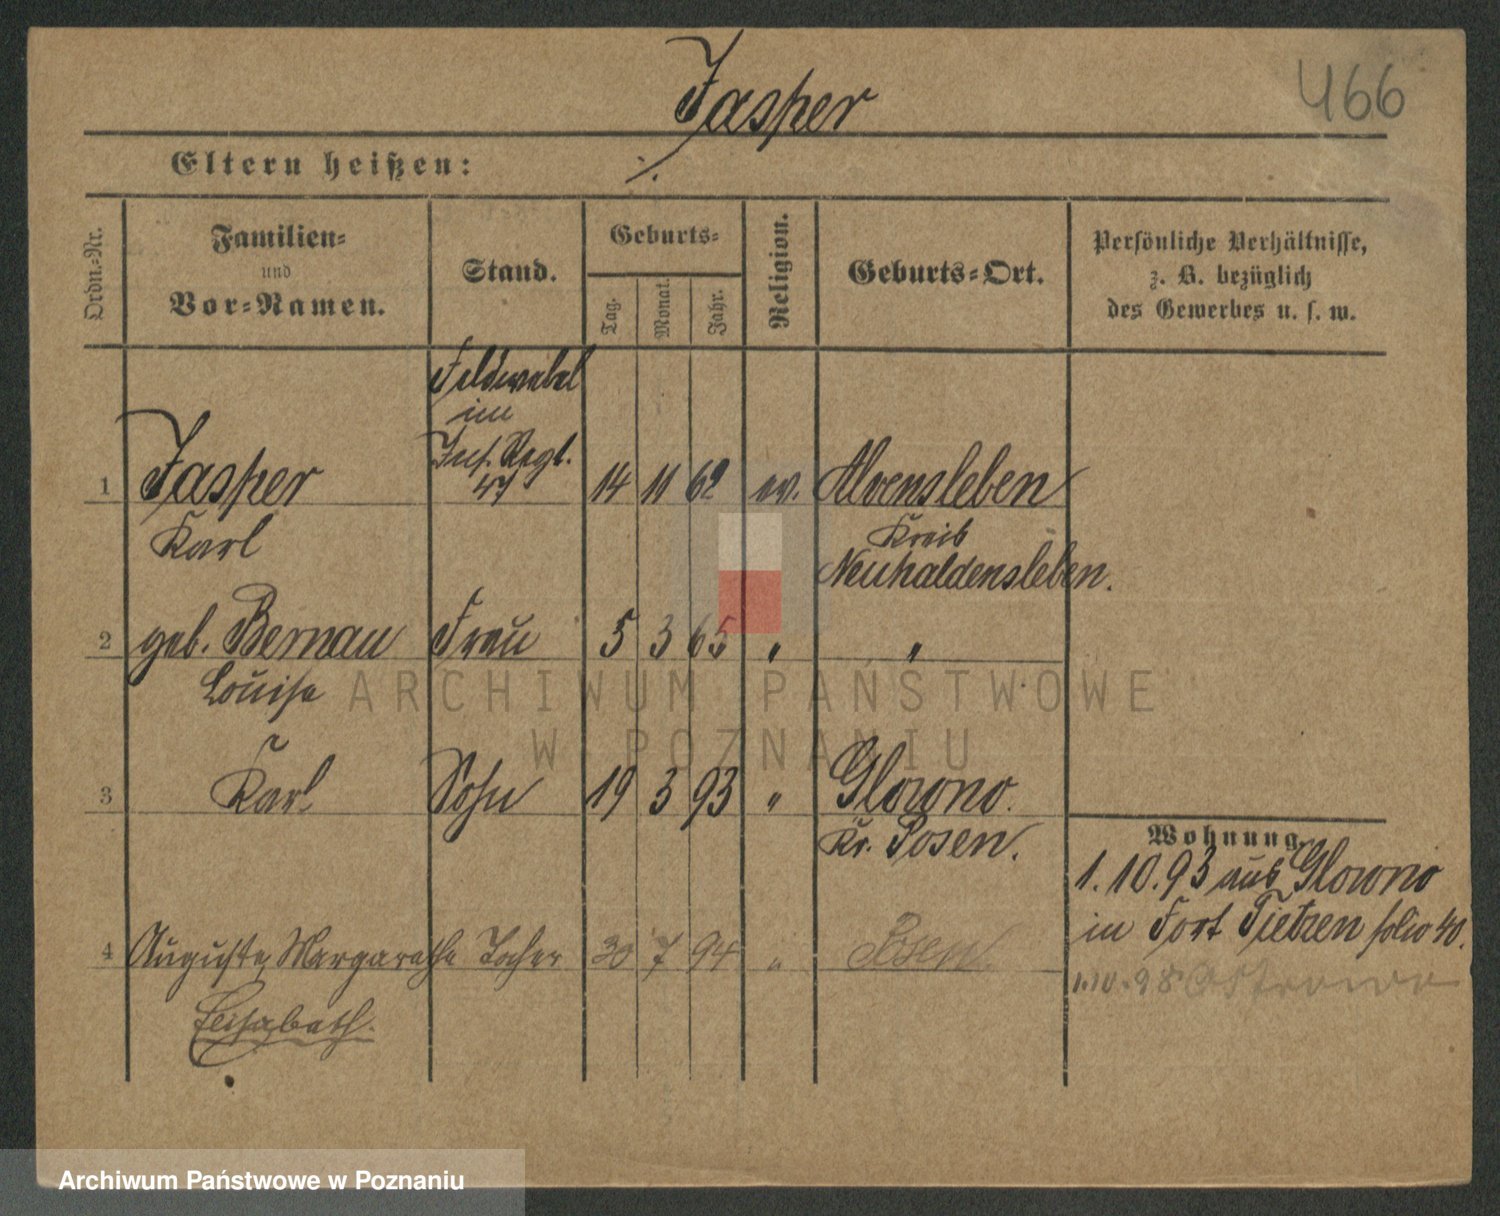 Jasper
466
Eltern heißen: ⁒
Ordn.-Nr.
Familien-
und
Vor-Namen.
Stand.
Geburts-
Tag.
Monat.
Jahr.
Religion.
Geburts-Ort.
Persönliche Verhältnisse,
z. B. bezüglich
des Gewerbes u. s. w.
Feldwebel
im
Inf. Regt.
47
1 Jasper 14 11 62 ev. Alvensleben
Karl
Kreis
Neuhaldensleben.
2 geb. Bernau Frau 5 3 65 " "
Louise
3 Karl Sohn 19 3 93 " Glowno.
Kr. Posen.
Wohnung.
1.10.93 aus Glowno
in Fort Tietzen folio 40.
4 Auguste Margarethe Tochter 30 7 94 " Posen.
1.10.98 Ostrowo
Elisabeth.
ARCHIWUM PAŃSTWOWE
W POZNANIU
Archiwum Państwowe w Poznaniu